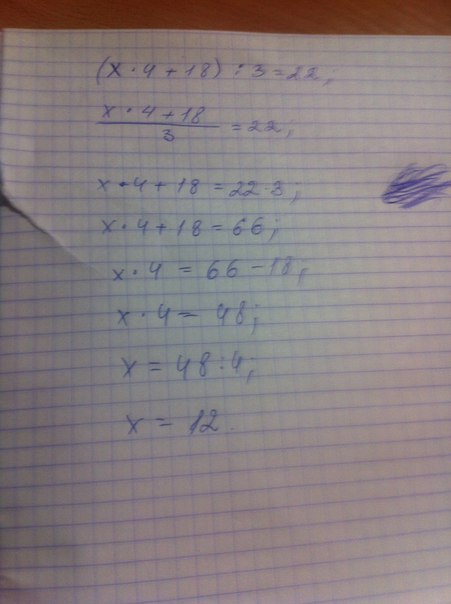 (x · 4 + 18) : 3 = 22;
x · 4 + 18
3
= 22;
x · 4 + 18 = 22 · 3;
x · 4 + 18 = 66;
x · 4 = 66 - 18;
x · 4 = 48;
x = 48 : 4;
x = 12.